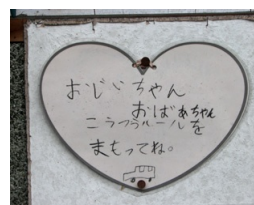 おじいちゃん
おばあちゃん
こうつうルールを
まもってね。